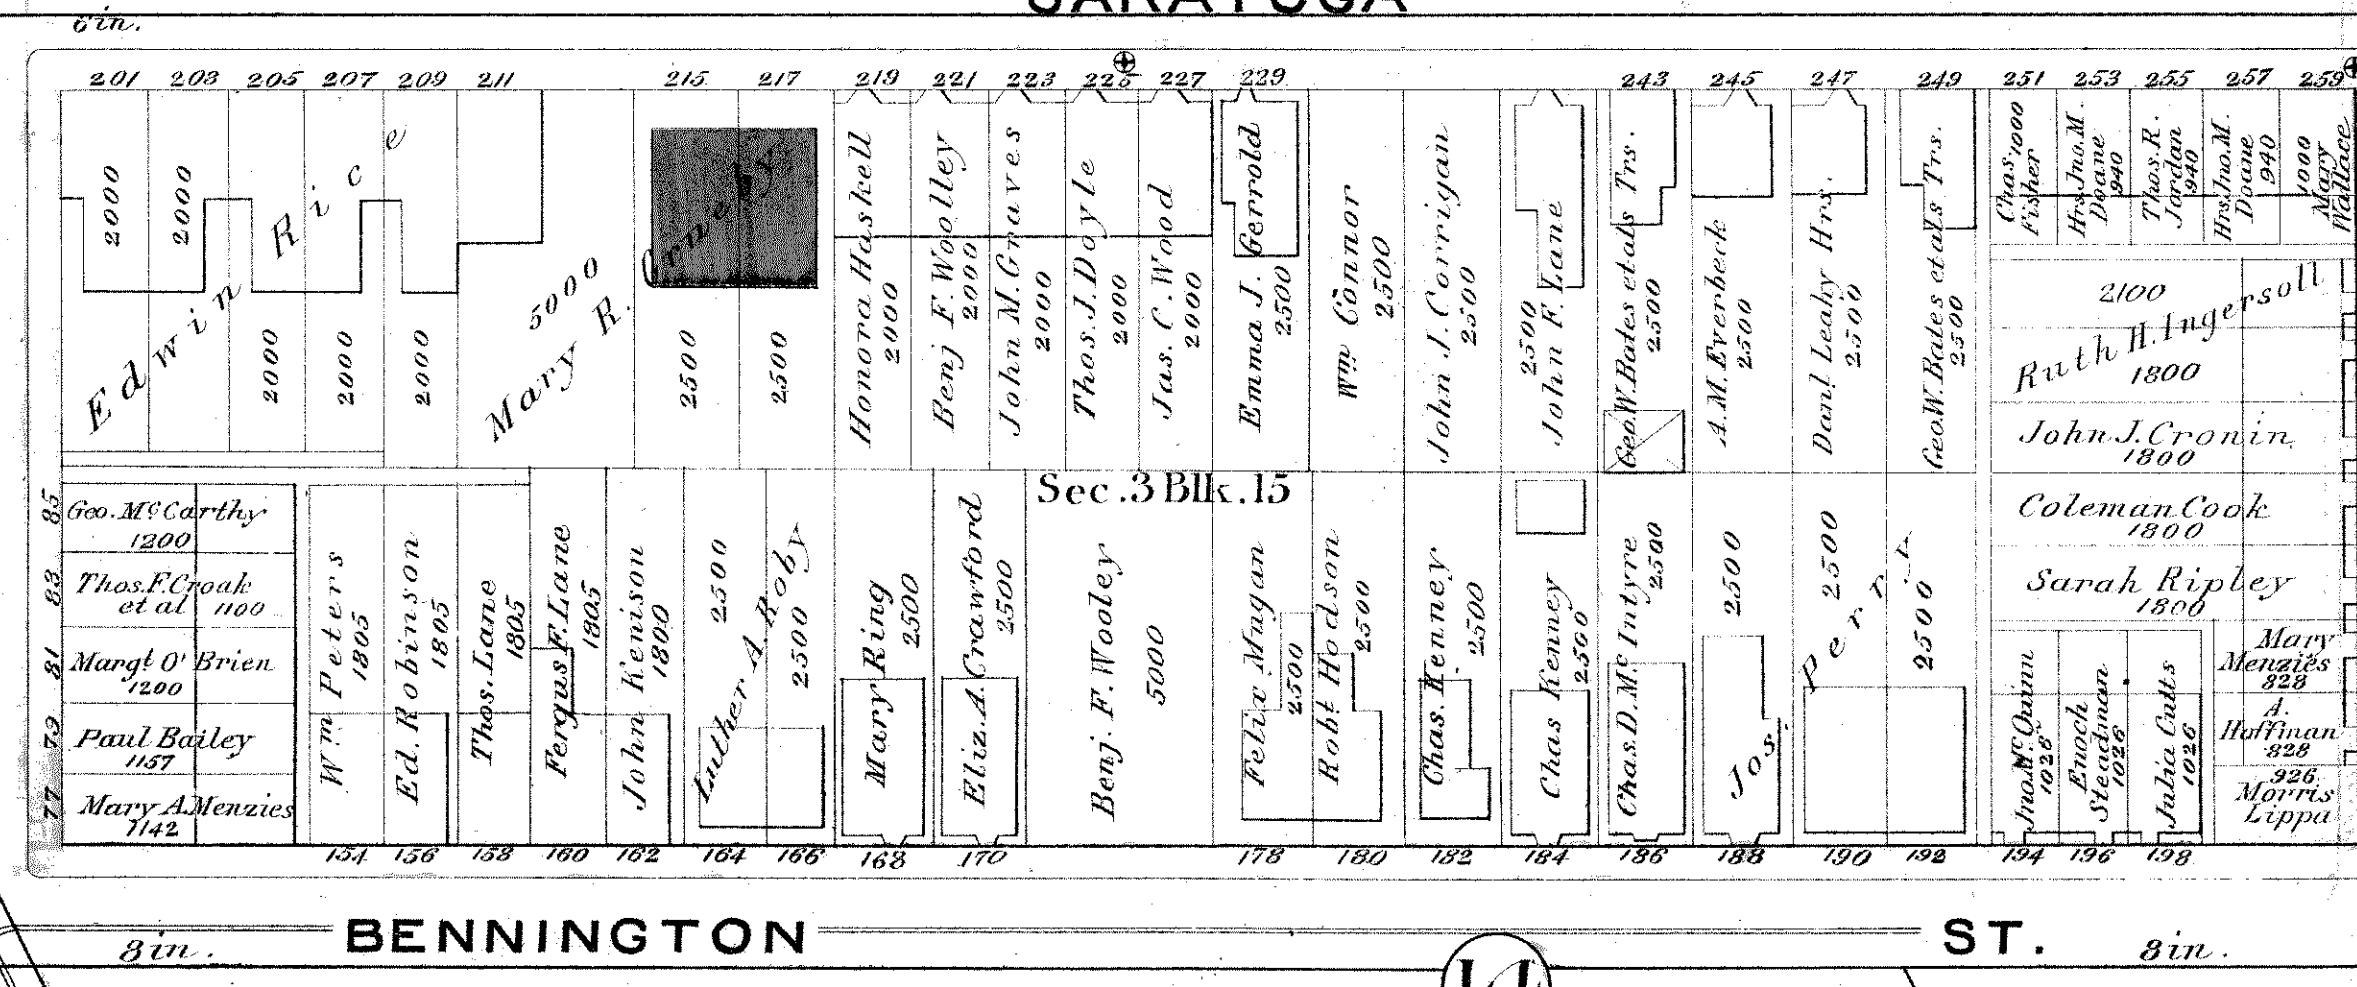 SARATOGA
6in.
201 203 205 207 209 211 215 217 219 221 223 225 227 229 243 245 247 249 251 253 255 257 259
Edwin Rice
2000
2000
2000
2000
2000
Mary R.
5000
2500
2500
Honora Haskell
2000
Benj F. Woolley
2000
John M. Graves
2000
Thos. J. Doyle
2000
Jas. C. Wood
2000
Emma J. Gerrold
2500
Wm Connor
2500
John J. Corrigan
2500
John F. Lane
2500
Geo.W.Bates etals Trs.
2500
A.M. Everbeck
2500
Danl Leahy Hrs.
2500
Geo.W.Bates etals Trs.
2500
Chas. 1000
Fisher
Hrs. Jno. M.
Doane
940
Thos. R.
Jordan
940
Hrs. Jno. M.
Doane
940
1000
Mary
Wallace
2100
Ruth H. Ingersoll
1800
John J. Cronin
1800
Coleman Cook
1800
Sarah Ripley
1800
Mary
Menzies
828
A.
Hoffman
828
926
Morris
Lippa
Sec. 3 Blk. 15
85
Geo. McCarthy
1200
83
Thos. F. Croak
et al 1100
81
Margt O'Brien
1200
79
Paul Bailey
1157
77
Mary A. Menzies
1142
Wm Peters
1805
Ed. Robinson
1805
Thos. Lane
1805
Fergus F. Lane
1805
John Kenison
1800
Luther A. Roby
2500
2500
Mary Ring
2500
Eliz. A. Crawford
2500
Benj. F. Wooley
5000
Felix Mugan
2500
Robt Hodson
2500
Chas. Kenney
2500
Chas Kenney
2500
Chas. D. Mc Intyre
2500
Jos.
2500
2500
2500
Jno. McQuinn
1028
Enoch
Steadman
1026
Julia Cutts
1026
154 156 158 160 162 164 166 168 170 178 180 182 184 186 188 190 192 194 196 198
BENNINGTON ST.
8in. 8in.